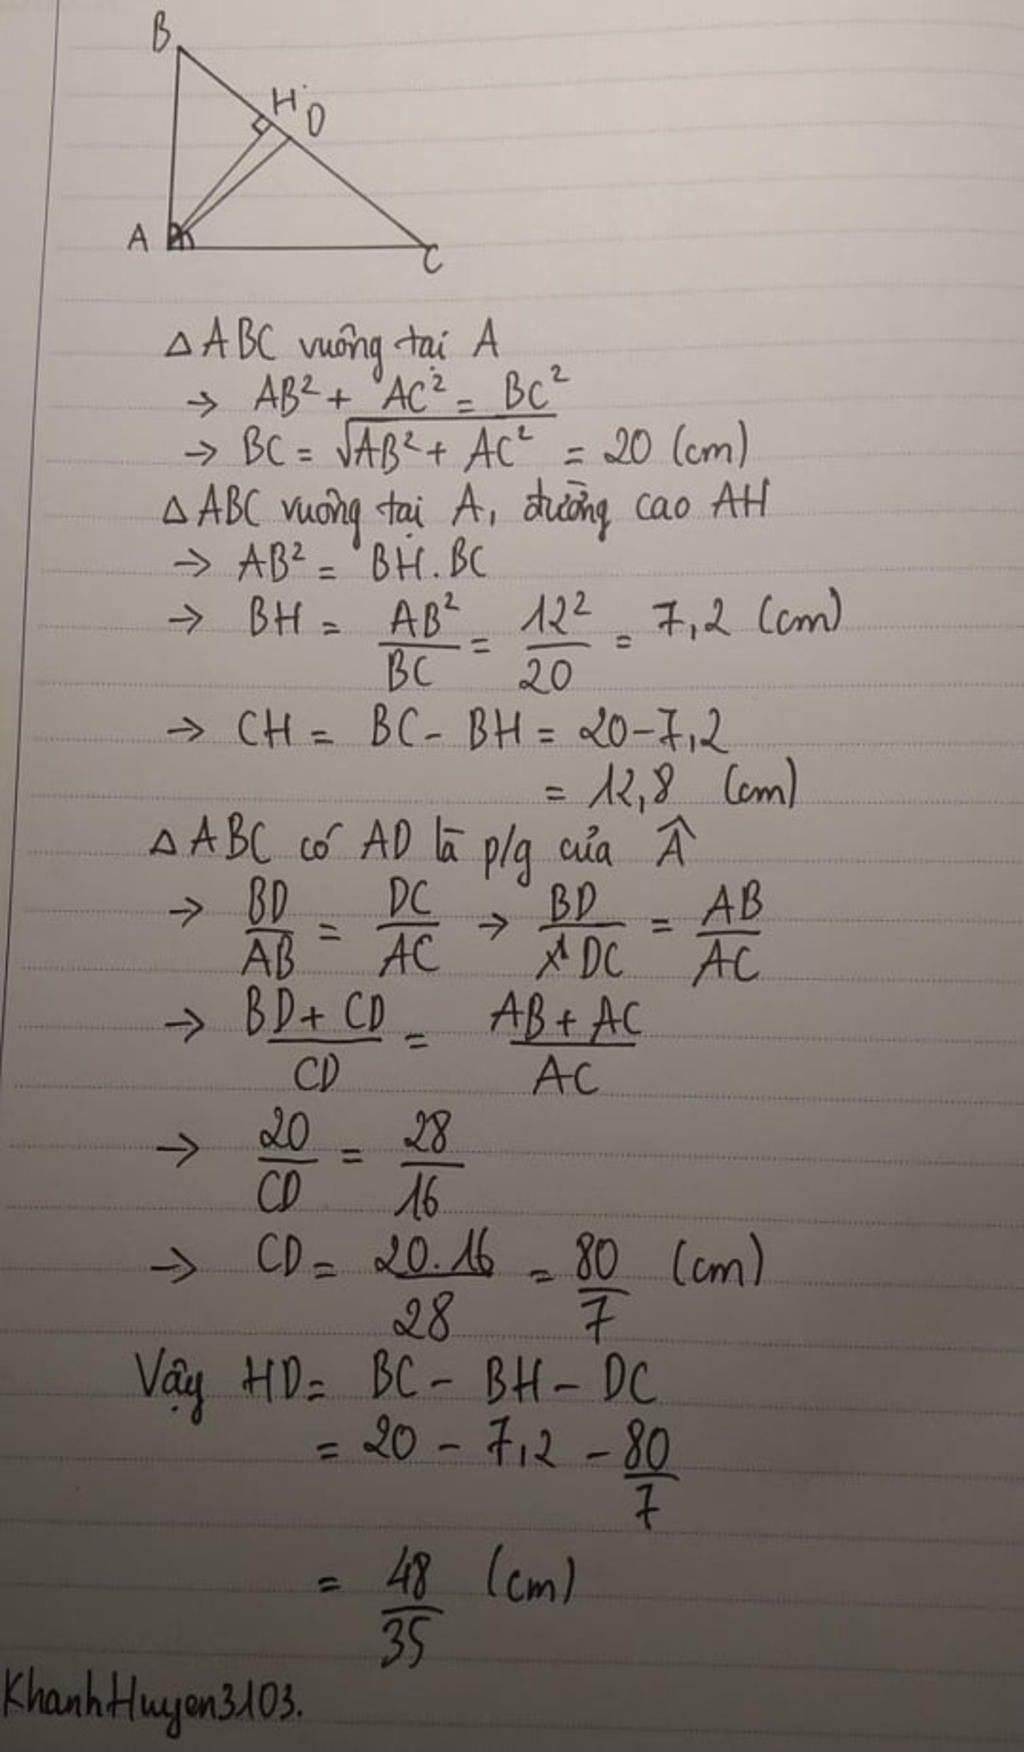 B
H
D
A
C
△ ABC vuông tại A
→ AB² + AC² = BC²
→ BC = √(AB² + AC²) = 20 (cm)
△ ABC vuông tại A, đường cao AH
→ AB² = BH.BC
→ BH = AB²/BC = 12²/20 = 7,2 (cm)
→ CH = BC - BH = 20-7,2
= 12,8 (cm)
△ ABC có AD là p/g của Â
→ BD/AB = DC/AC → BD/DC = AB/AC
→ (BD + CD)/CD = (AB + AC)/AC
→ 20/CD = 28/16
→ CD = 20.16/28 = 80/7 (cm)
Vậy HD = BC - BH - DC
= 20 - 7,2 - 80/7
= 48/35 (cm)
KhanhHuyen3103.